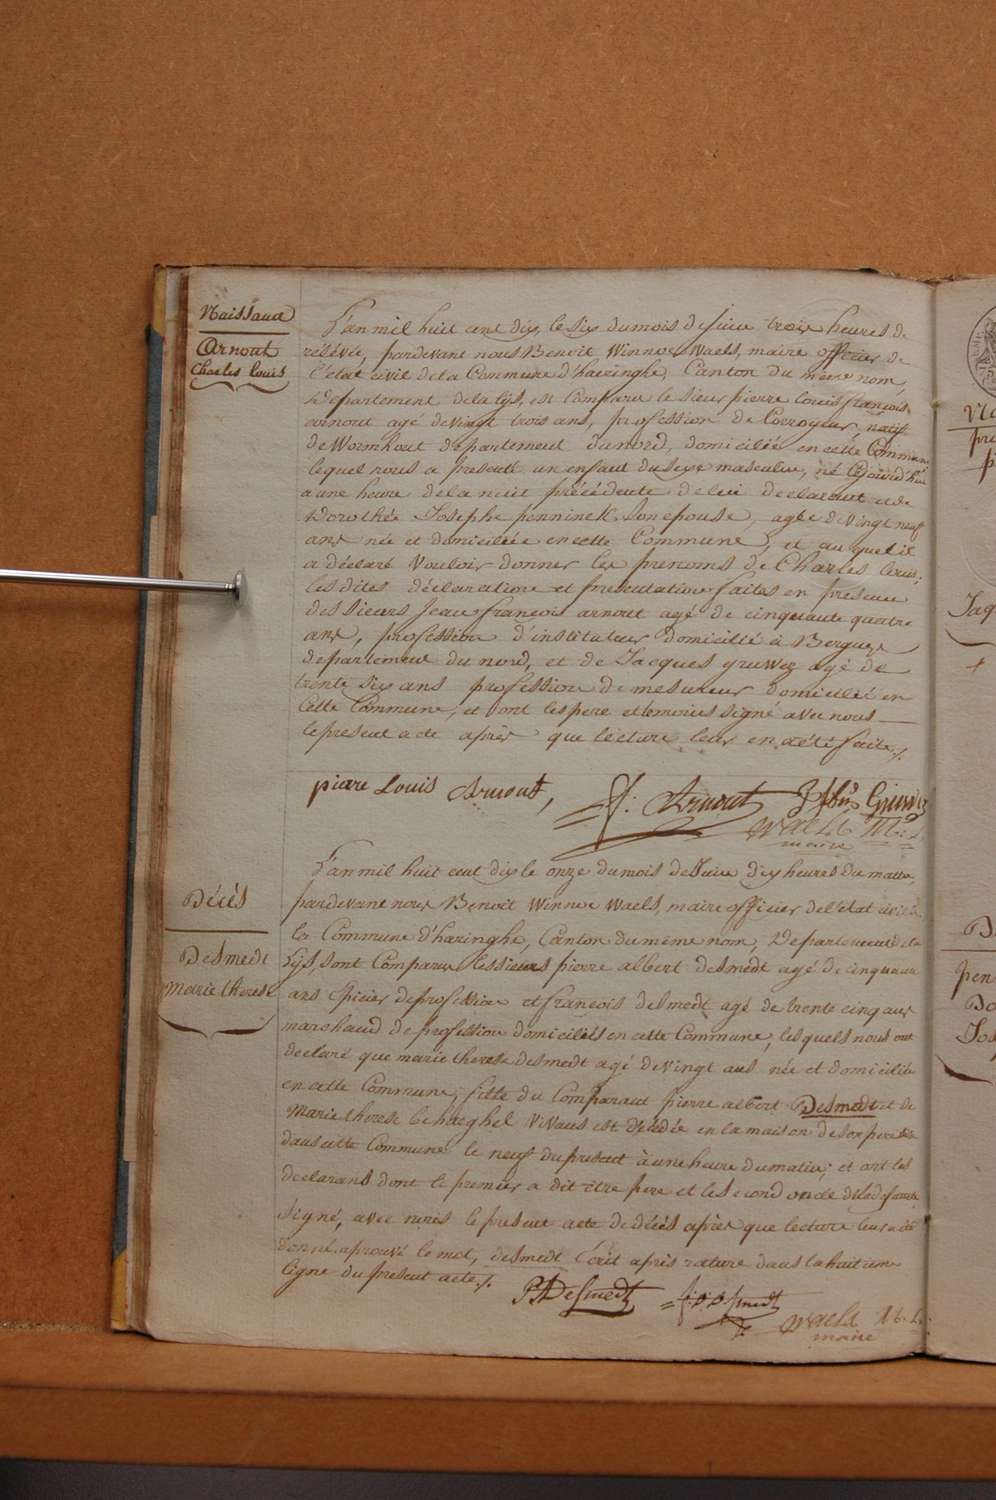 Naissance
Arnout
Charles Louis
L'an mil huit cent dix, le six du mois de juin trois heures de
relevée, pardevant nous Benoit Winnoc Waels, maire officier de
l'état civil de la Commune d'haringhe, Canton du même nom,
département de la lÿs, est Comparu le sieur pierre louis françois
arnout agé de vingt trois ans, profession de Corroyeur, natif
de Wormhout département du nord, domiciliée en cette Commune
lequel nous a presenté un enfant du sexe masculin, né cejourd'hui
a une heure de la nuit précédente de lui declarant et de
Dorothée Josephe penninck son epouse, agée de vingt neuf
ans née et domiciliée en cette Commune, et auquel il
a déclaré Vouloir donner les prenoms de Charles louis;
les dites déclaration et presentation faites en presence
des sieurs Jean françois arnout agé de cinquante quatre
ans, profession d'instituteur domicilié à Bergues
departement du nord, et de Jacques gruwez agé de
trente six ans profession de mesureur domicilié en
cette Commune, et ont les pere et temoins signé avec nous
le present acte après que lecture leur en a été faite./.
piere Louis Arnout, J: Arnout Gruwez
Waels M: L
maire
Décès
Desmedt
Marie therese
L'an mil huit cent dix le onze du mois de Juin dix heures du matin,
pardevant nous Benoit Winnoc Waels, maire officier de l'etat civil de
la Commune d'haringhe, Canton du même nom, Departement de la
Lÿs, sont Comparus les sieurs pierre albert desmedt agé de cinquante
ans Epicier de profession et françois desmedt agé de trente cinq ans
marchand de profession domiciliés en cette Commune, lesquels nous ont
declaré que marie therese desmedt agé de vingt ans née et domiciliée
en cette Commune, fille du Comparant pierre albert Desmedt et de
Marie therese Behaeghel Vivans est décédée en la maison de son pere
dans cette Commune le neuf du present à une heure du matin; et ont les
declarans dont le premier a dit être pere et le second oncle de la defunte
signé, avec nous le present acte de décès après que lecture leur a été
donné. aprouvé le mot, desmedt Ecrit après rature dans la huitieme
ligne du present acte./.
P A Desmedt J: D: Smedt
Waels M. L.
maire